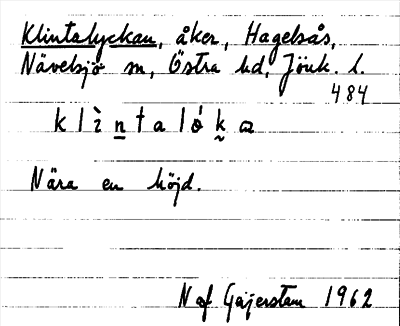 Klintalyckan, åker, Hagelsås,
Nävelsjö sn, Östra hd, Jönk. l.
484
k l ì n t a l ó k a
Nära en höjd.
N af Geijerstam 1962